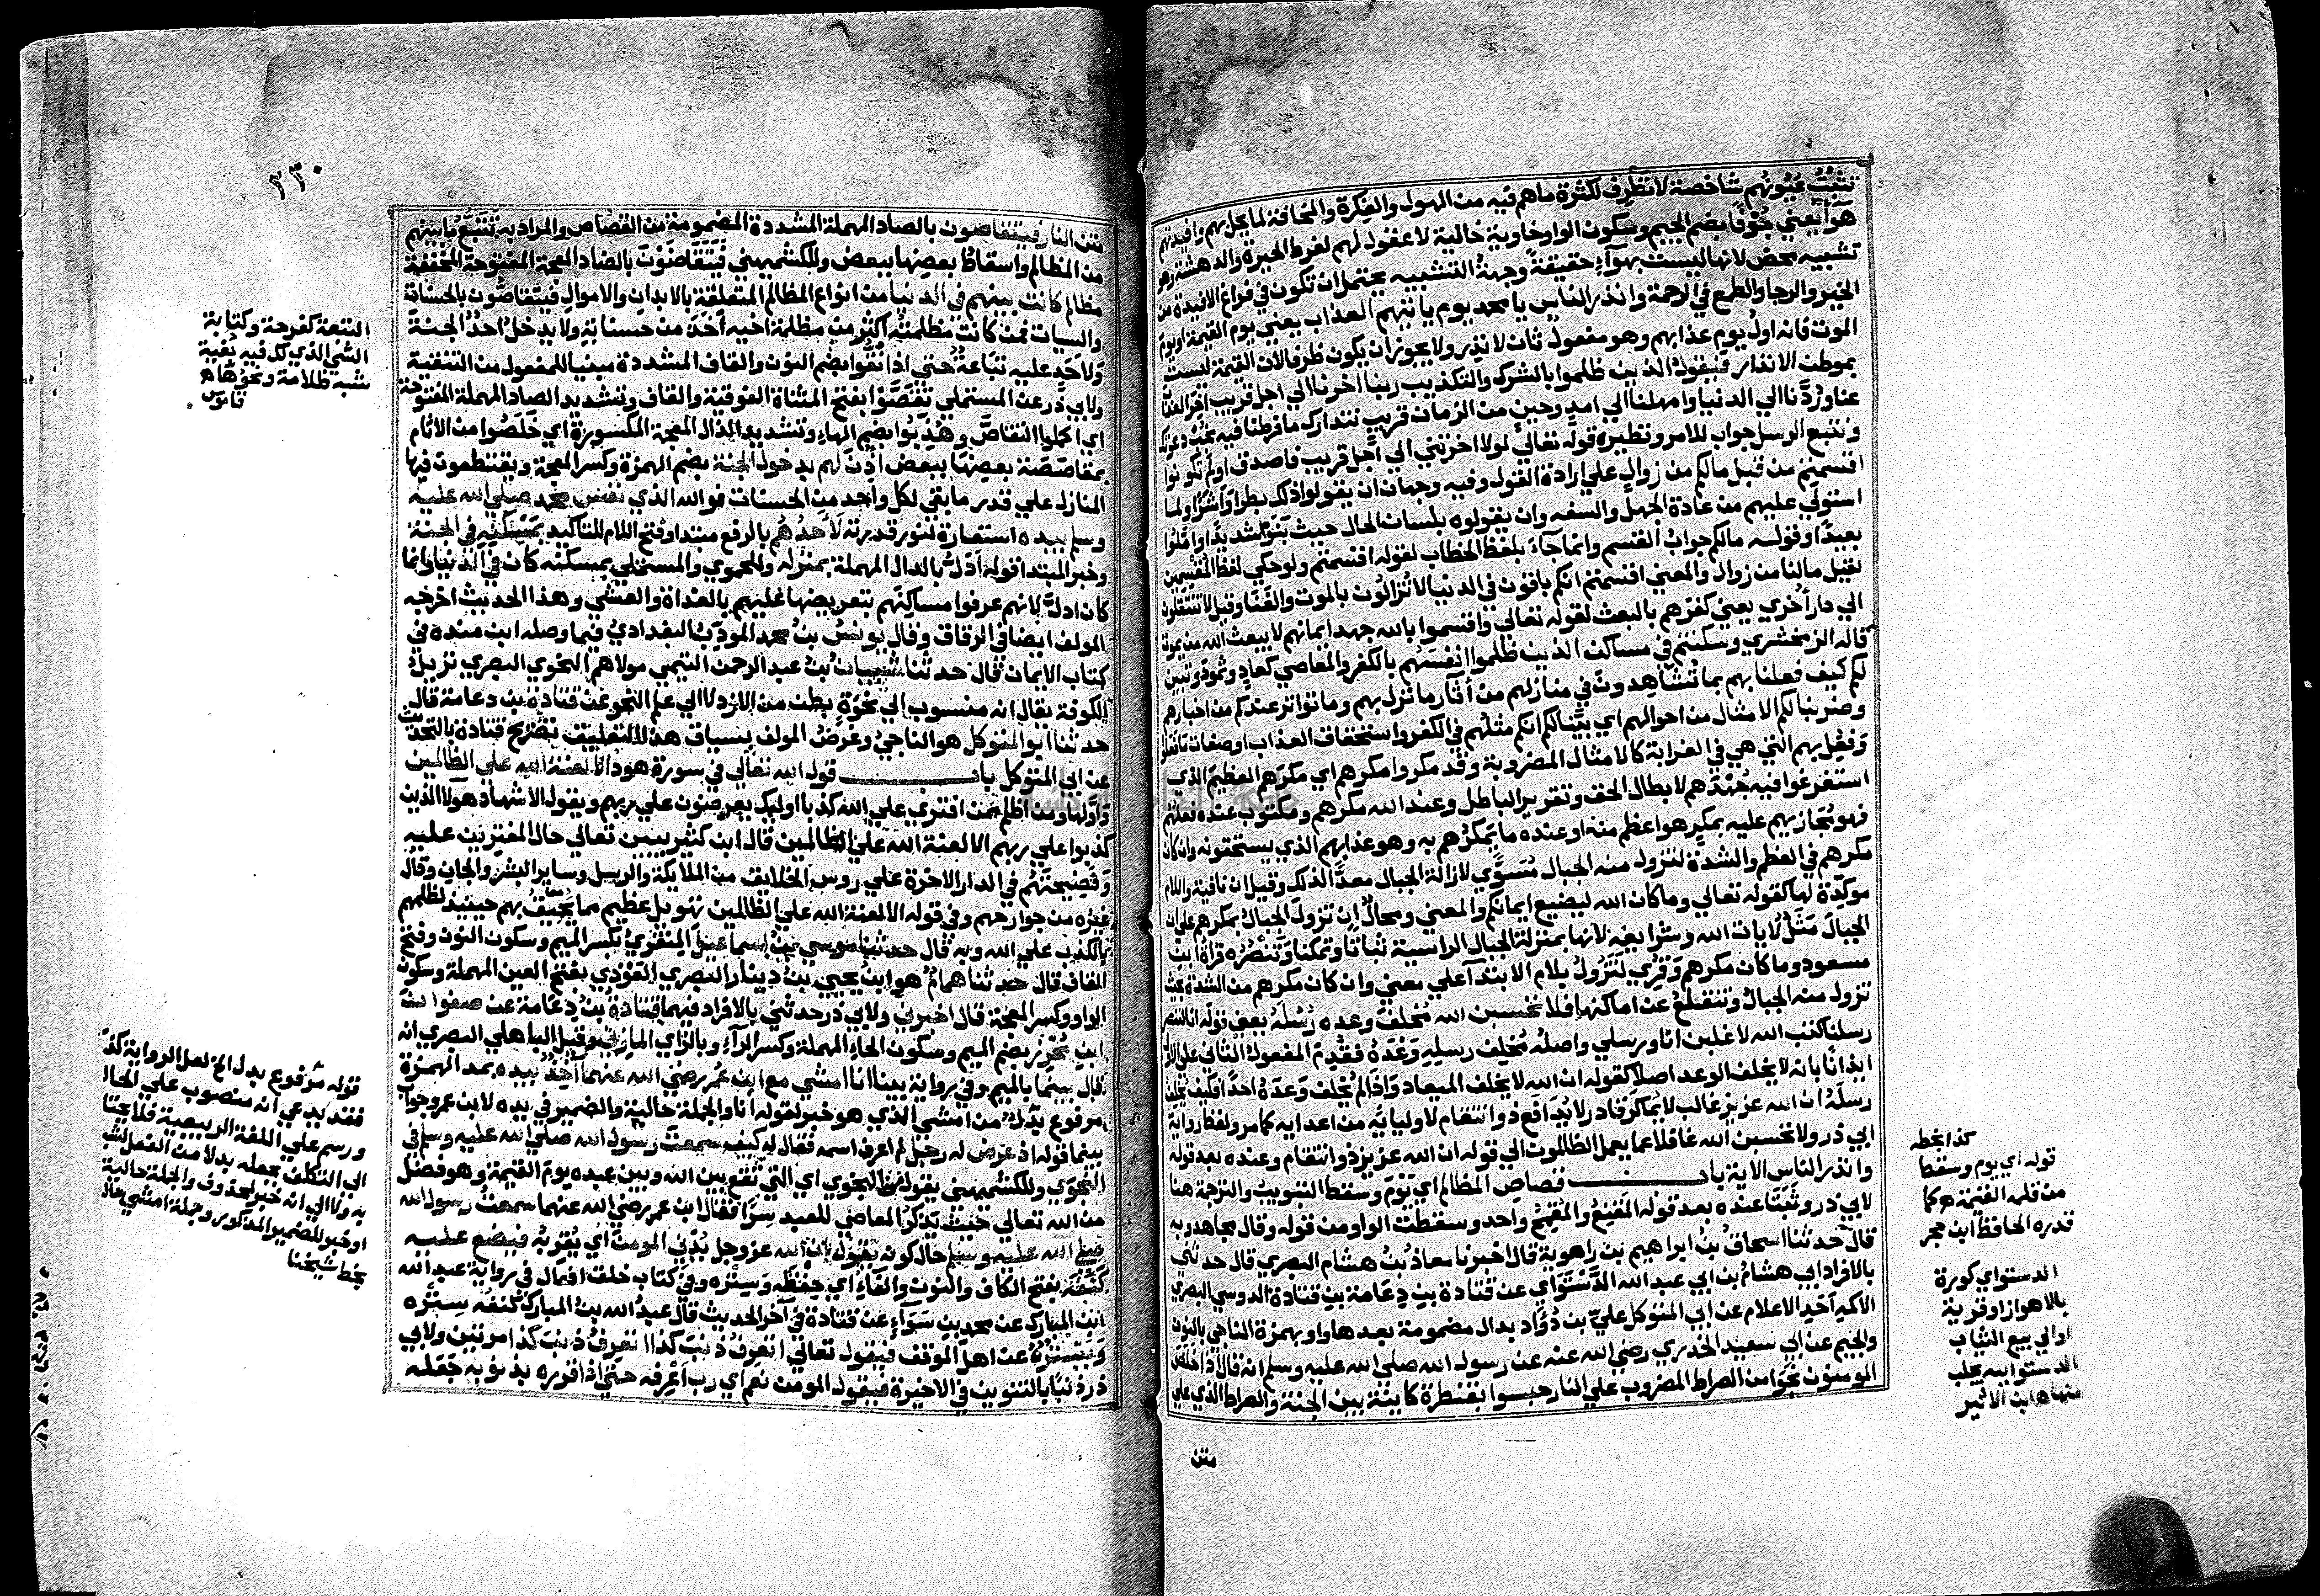 تثبت عيونهم شاخصة لا تطرف لكثرة ما هم فيه من الهول والفكرة والمخافة لما يحل بهم وافيدتهم
هوا يعني جُوْفًا بضم الجيم وسكون الواو خاوية خالية لا عقول لهم لفرط الحيرة والدهشة وهو
تشبيه محض لانها ليست بهوآءٍ حقيقةً وجهة التشبيه يحتمل ان تكون في فراغ الافيدة من
الخير والرجا والطمع في الرحمة وانذر الناس يا محمد يوم ياتيهم العذاب يعني يوم القيمة او يوم
الموت فانه اول يوم عذابهم وهو مفعول ثان لانذر ولا يجوز ان يكون ظرفا لان القيمة ليست
بموطن الانذار فيقول الذين ظلموا بالشرك والتكذيب ربنا اخرنا الي اجل قريب اخر العذاب
عنا ورُدَّنا الي الدنيا وامهلنا الي امدٍ وحينٍ من الزمان قريب نتدارك ما فرطنا فيه نجب دعوتك
ونتبع الرسل جواب للامر ونظيره قوله تعالي لولا اخرتني الي اجل قريب فاصدق اولم تكونوا
اقسمتم من قبل مالكم من زوالٍ علي ارادة القول وفيه وجهان ان يقولوا ذلك بطرا واشرًا ولما
استولي عليهم من عادة الجهل والسفه وان يقولوه بلسان الحال حيث بنوا شديدًا واملوا
بعيدًا وقوله مالكم جوابُ القسم وانما جآءَ بلفظ الخطاب لقوله اقسمتم ولو حكي لفظ المقسمين
لقيل مالنا من زوال والمعني اقسمتم انكم باقون في الدنيا لا تُزالون بالموت والفنا وقيل لا تنتقلون
الي دار اُخري يعني كفرهم بالبعث لقوله تعالي واقسموا بالله جهد ايمانهم لا يبعث الله من يموت
قاله الزمخشري وسكنتم في مساكن الذين ظلموا انفسهم بالكفر والمعاصي كعادٍ وثمود وتبين
لكم كيف فعلنا بهم بما تُشاهدون في منازلهم من اثار ما نزل بهم وما تواتر عندكم من اخبارهم
وضربنا لكم الامثال من احوالهم اي بيّنا لكم انكم مثلهم في الكفر واستحقاق العذاب او صفات ما فعلوا
وفُعِل بهم التي هي في الغرابة كالامثال المضروبة وقد مكروا مكرهم اي مكرهم العظيم الذي
استفرغوا فيه جُهْدَهم لابطال الحق وتقرير الباطل وعند الله مكرهم ومكتوب عنده فعلهم
فهو مُجازيهم عليه بمكرٍ هو اعظم منه او عنده ما يمكرُهم به وهو عذابهم الذي يستحقونه وان كان
مكرهم في العظم والشدة لتزول منه الجبال مُسَوًّي لازالة الجبال معدًّا لذلك وقيل ان نافية واللام
موكدة لها كقوله تعالي وما كان الله ليضيع ايمانكم والمعني ومحالٌ ان تزول الجبالُ بمكرهم علي ان
الجبال مَثَلٌ لايات الله وشرايعِه لانها بمنزلة الجبال الراسية ثباتًا وتمكنا وتنصُرُه قراةُ ابن
مسعود وما كان مكرهم وقُرِي لَتَزولُ بلام الابتدآ علي معني وان كان مكرهم من الشدة بحيث
تزول منه الجبال وتنقطع عن اماكنها فلا تحسبن الله مُخلفَ وعده رُسُلَهُ يعني قوله انا لننصر
رسلنا كتب الله لاغلبن انا ورسلي واصله مُخلف رسله وعْدَهُ فقُدِّم المفعول الثاني علي الاول
ايذانًا بانه لا يخلف الوعد اصلا كقوله ان الله لا يخلف الميعاد واذا لم يُخلف وَعدَهُ احدًا فكيف يُخلف
رسلَهُ ان الله عزيز غالب لا يُماكر قادر لا يُدافَع ذو انتقام لاوليايه من اعدايه كما مر ولفظ رواية
ابي ذر ولا تحسبن الله غافلا عما يعمل الظالمون الي قوله ان الله عزيز ذو انتقام وعنده بعد قوله
وانذر الناس الاية باب قصاص المظالم اي يَوْمَ وسقط التبويبُ والترجمة هنا
لابي ذر وثبَتَا عنده بعد قوله المُقنِعُ والمُقمِحُ واحد وسقطت الواو من قوله وقال مجاهد وبه
قال حدثنا اسحاقُ بنُ ابراهيم بن راهوية قال اخبرنا معاذُ بنُ هشام البصري قال حدثني
بالافراد ابي هشامُ بن ابي عبد الله الدَّسْتَوَاي عن قتادة بنِ دِعَامة بنِ قتادة الدوسي البصري
الاكمه اَحَدِ الاعلام عن ابي المتوكل عليّ بن دُؤاد بدال مضمومة بعدها واو بهمزة الناجي بالنون
والجيم عن ابي سعيد الخدري رضي الله عنه عن رسول الله صلي الله عليه وسلم انه قال اذا خلص
المومنون نجَوا من الصراط المضروب علي النار حبسوا بقنطرة كاينة بين الجنة والصراط الذي علي
متن
كذا بخطه
قوله اي يوم وسقط
من قلمه القيمة هكذا
قدره الحافظ ابن حجر
الدستواي كورة
بالاهواز او قرية
او الي بيع الثياب
الدستوانيه يجلب
منها ابن الاثير
٢٢٠
متن النار فيتقاصون بالصاد المهملة المشددة المضمومة من القصاص والمراد به تتبّعُ ما بينهم
من المظالم واسقاطُ بعضِها ببعض وللكشميهني فيَتَقَاضَوْنَ بالضاد المعجمة المفتوحة المخففة
مظالم كانت بينهم في الدنيا من انواع المظالم المتعلقة بالابدان والاموال فيتقاصُّون بالحسنات
والسيات فمن كانت مظلمته اكثر من مظلمة اخيه اَخَذَ من حسناتِهِ ولا يدخل احدٌ الجنةَ
ولاحدٍ عليه تَبَاعةٌ حتي اذا نُقُّوا بضم النون والقاف المشددة مبنيا للمفعول من التنقية
ولابي ذر عن المستملي تَقَصَّوْا بفتح المثناة الفوقية والقاف وتشديد الصاد المهملة المفتوحة
اي اكملوا التقاصَّ وهُذِّبُوا بضم الهاءِ وتشديد الذال المعجمة المكسورة اي خَلَصُوا من الاثام
بمقاصَصَة بعضِها ببعض اُذِنَ لهم بدخول الجنة بضم الهمزة وكسر المعجمة ويقتطعون فيها
المنازل علي قدر ما بقي لكل واحد من الحسنات فوالله الذي نفس محمد صلي الله عليه
وسلم بيده استعارة لنور قدرته لاَحَدُهُم بالرفع مبتدا وفتح اللام للتاكيد بمَسْكَنِه في الجنة
وخبر المبتدا قوله اَدَلُّ بالدال المهملة بمنزله وللحموي والمستملي بمسكنه كان في الدنيا وانما
كان ادلَّ لانهم عرفوا مساكِنَهم بتعريضِها عليهم بالغداة والعشي وهذا الحديث اخرجه
المولف ايضا في الرقاق وقال يونسُ بنُ محمد المودِّبُ البغداديُّ فيما وصله ابن منده في
كتاب الايمان قال حدثنا شيبانُ بنُ عبد الرحمن التميمي مولاهم النحوي البصري نزيلُ
الكوفة يقال انه منسوب الي نَحْوَة بطن من الازد لا الي علم النحو عن قتادة بن دعامة قال
حدثنا ابو المتوكل هو الناجيُّ وغرضُ المولف بسياق هذا التعليق تصريح قتادة بالتحديث
عن ابي المتوكل باب قول الله تعالي في سورة هود الا لعنة الله علي الظالمين
واوّلها ومن اظلم ممن افتري علي الله كذبا اوليك يعرضون علي ربهم ويقول الاشهاد هولا الذين
كذبوا علي ربهم الا لعنة الله علي الظالمين قال ابن كثير يبين تعالي حال المفترين عليه
وفضيحتَهُم في الدار الاخرة علي روس الخلايق من الملايكة والرسل وساير البشر والجان وقال
غيره من جوارحهم وفي قوله الا لعنة الله علي الظالمين تهويل عظيم مما يَحيقُ بهم حينيذ لظلمهم
بالكذب علي الله وبه قال حدثنا موسي بنُ اسماعيل المِنْقَريُّ بكسر الميم وسكون النون وفتح
القاف قال حدثنا همامٌ هو ابن يحيي بنُ دينار البصري العَوْذي بفتح العين المهملة وسكون
الواو وكسر المعجمة قال اخبرني ولابي ذر حدثني بالافراد فيهما قتادةُ بنُ دِعَامة عن صفوانَ
ابنِ مُحْرِز بضم الميم وسكون الحاءِ المهملة وكسر الرآءِ وبالزاي المازني وقيل الباهلي البصري انه
قال بينما بالميم وفي رواية بينا انا امشي مع ابن عُمر رضي الله عنهما آخِذٌ بيده بمد الهمزة
مرفوع بدلٌ من امشي الذي هو خبر لقوله انا والجملة حالية والضمير في يده لابن عمر وجواب
بينما قوله اذ عرض له رجل لم اعرف اسمه فقال له كيف سمعتَ رسول الله صلي الله عليه وسلم في
النجْوَي وللكشميهني يقول في النجوي اي التي تَقَع بين الله وبين عبده يومَ القيمة وهو فضل
من الله تعالي حيث يَذكُرُ المعاصي للعبد سرًّا فقال ابن عمر رضي الله عنهما سمعتُ رسول الله
صلي الله عليه وسلم حال كونه يقول ان الله عز وجل يُدْني المومن اي يُقَرِّبُهُ فيضع عليه
كَنَفَهُ بفتح الكاف والنون والفاءِ اي حِفْظَه وسِتْرَه وفي كتاب خلق افعال في رواية عبد الله
ابن المبارك عن محمد بنِ سَوَآءٍ عن قتادة في آخر الحديث قال عبدُ الله بنُ المبارك كَنَفُهُ سِتْرُه
وَيَسْتُرُهُ عن اهل الموقف فيقول تعالي اتعرف ذنبَ كذا اتعرفُ ذنبَ كذا مرتين ولابي
ذر ذنبًا بالتنوين في الاخيرة فيقول المومن نعم اي رب اَعْرِفه حتي اذا قرره بذنوبه جَعَله
التبعة كفرحة وكتابة
الشي الذي لك فيه بُغية
شبه ظلامة ونحوها اه
قاموس
قوله مرفوع بدل الخ لعل الرواية كذا
فقد يدعي انه منصوب علي الحال
ورسم علي اللغة الربيعية فلا يحتاج
الي التكلف بجعله بدلا من الفعل
به ولا الي انه خبر لمحذوف والجملة حالية
او خبر للضمير المذكور وجملة امشي حال
بخط شيخنا